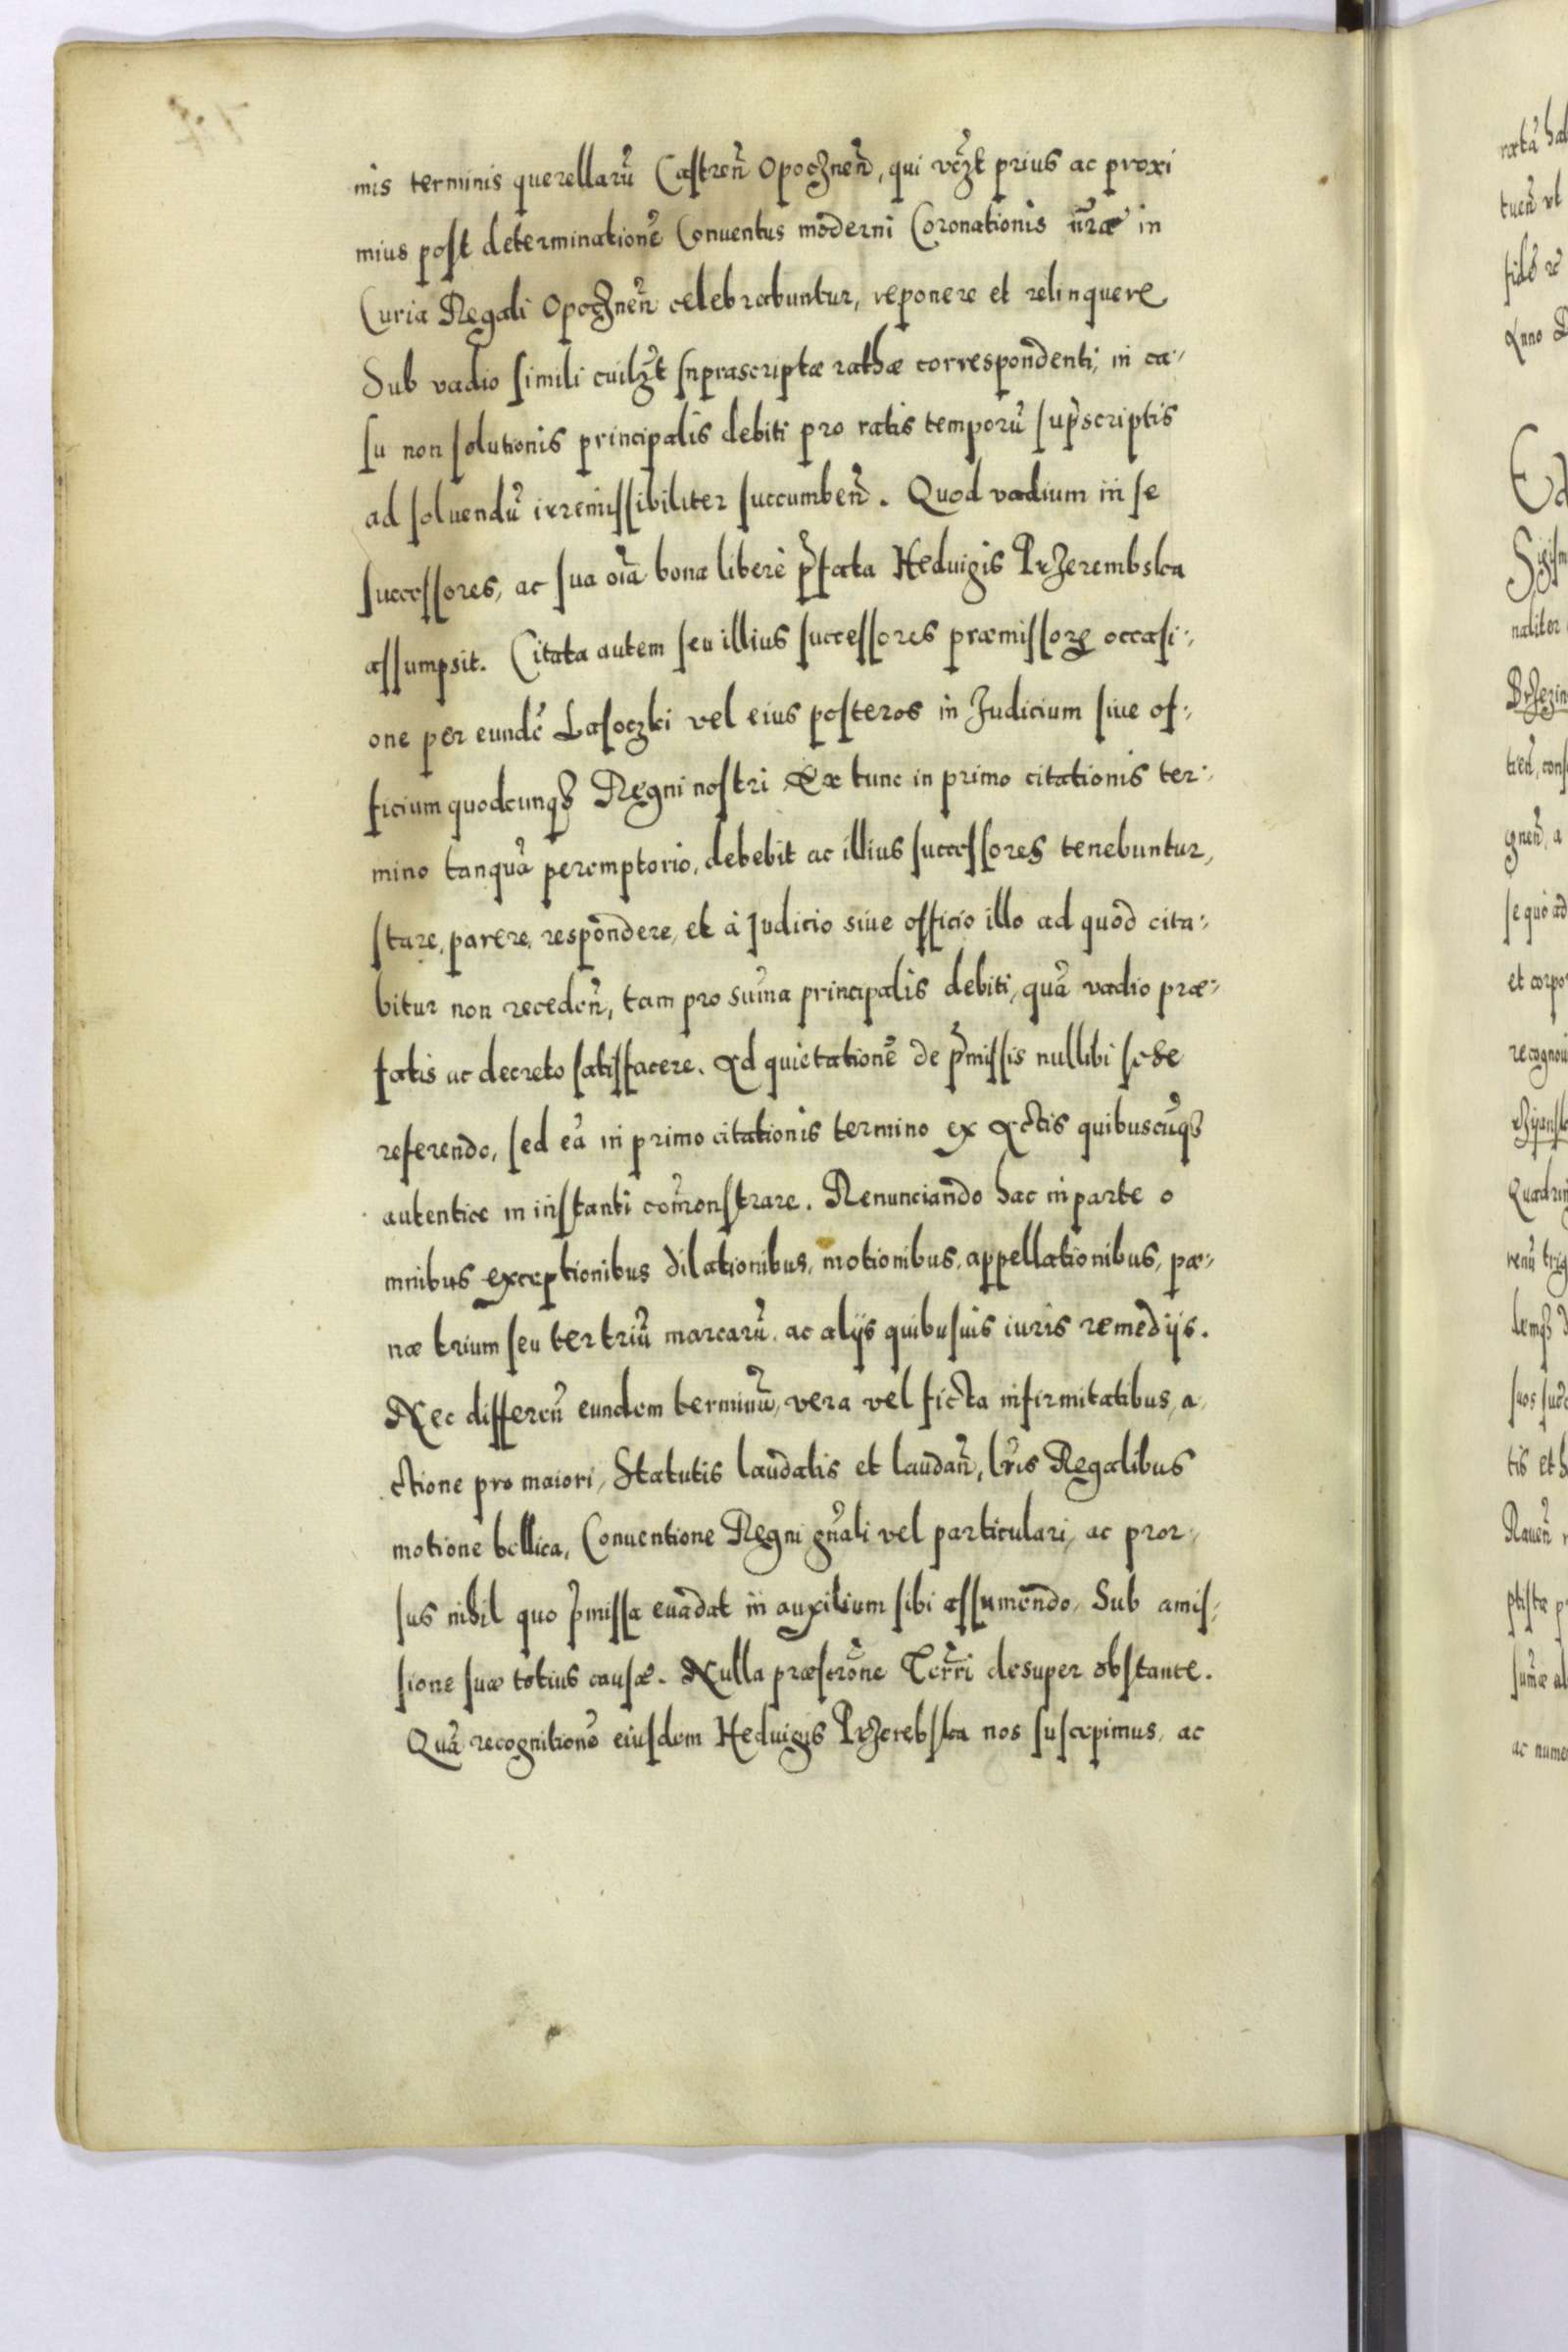 mis terminis querellarũ Castren̄ Opocznen̄, qui vcz̃t prius ac proxi
mius post determinationẽ Conuentus moderni Coronationis nr̃æ in
Curia Regali Opocznen̄ celebrabuntur, reponere et relinquere
Sub vadio simili cuilz̃t suprascriptæ rathæ correspondenti, in ca-
su non solutionis principalis debiti pro ratis temporũ sup̃scriptis
ad soluendũ irremissibiliter succumben̄. Quod vadium in se
successores, ac sua oĩa bona liberè p̃fata Heduigis Przerembska
assumpsit. Citata autem seu illius successores præmissorꝝ occasi-
one per eundẽ Lasoczki vel eius posteros in Judicium siue of-
ficium quodcunqꝫ Regni nostri Ex tunc in primo citationis ter-
mino tanquã peremptorio, debebit ac illius successores tenebuntur,
stare, parere, respondere, et à Judicio siue officio illo ad quod cita-
bitur non receden̄, tam pro sum̃a principalis debiti, quã vadio præ-
fatis ac decreto satisfacere. Ad quietationẽ de p̃missis nullibi sese
referendo, sed eã in primo citationis termino ex Actis quibuscũqꝫ
autentice in instanti com̃onstrare. Renunciando hac in parte o
mnibus exceptionibus dilationibus, motionibus, appellationibus, pæ-
næ trium seu ter triũ marcarũ, ac alijs quibusuis iuris remedijs.
Nec differen̄ eundem terminũ, vera vel ficta infirmitatibus, a
ctione pro maiori, Statutis laudatis et laudan̄, lr̃is Regalibus
motione bellica, Conuentione Regni gñali vel particulari, ac pror-
sus nihil quo p̃missa euadat in auxilium sibi assumendo, Sub amis-
sione suæ totius causæ. Nulla præscrõne Terr̃i desuper obstante.
Quã recognitionẽ eiusdem Heduigis Przerẽbska nos suscepimus, ac